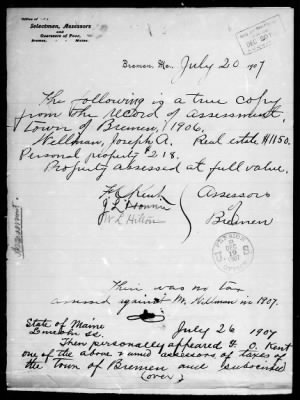 Office of
Selectmen, Assessors
and
Overseers of Poor,
Bremen, Maine.
DEC 20
Bremen, Me. July 20 1907
The following is a true copy
from the record of assessment,
Town of Bremen, 1906.
Wellman, Joseph A. Real estate $1150.
Personal property $218.
Property assessed at full value.
F O Kent
Assessors
of
Bremen
W L Hilton
DEC
19
Ther was no tax
assessed against Mr. Wellman in 1907.
State of Maine
Lincoln ss. July 26 1907
Then personally appeared F. O. Kent
one of the above named assessors of taxes of
the Town of Bremen and subscribed
(over)